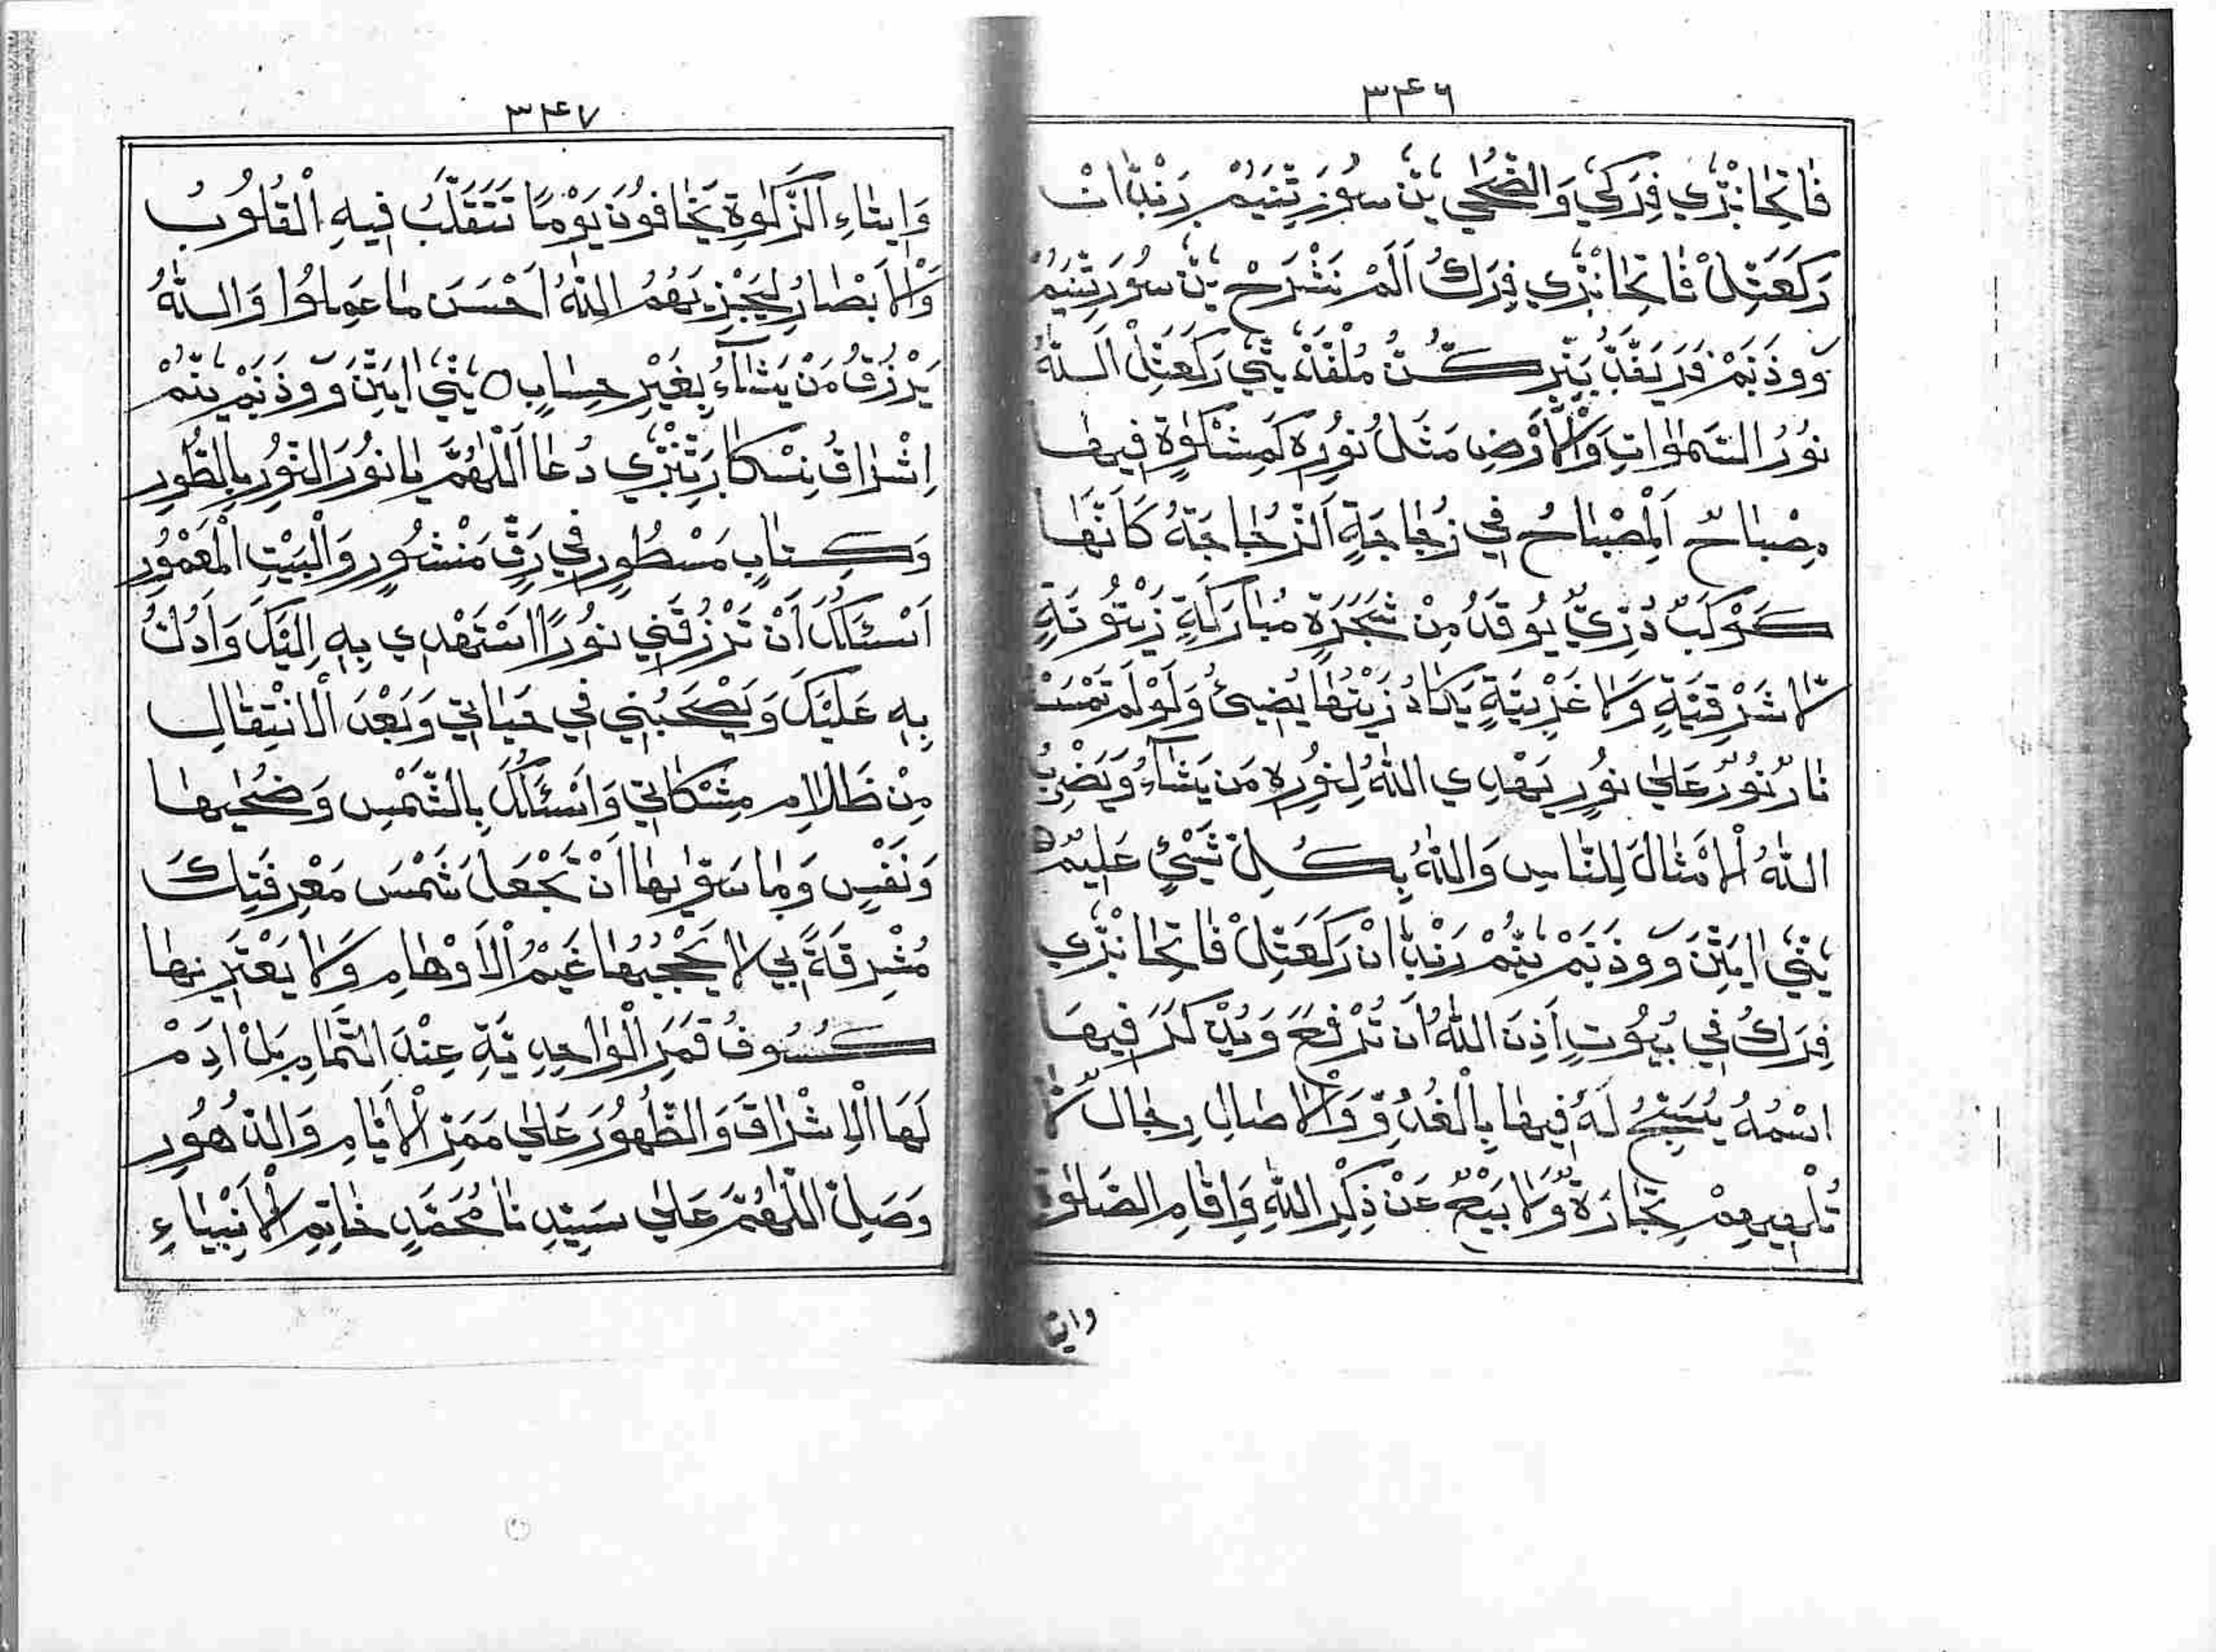 ٣٤٦
فَاتِحَانْپْرَي فِرَكِي وَالضُّحٰي يٜنَّ سُوْرَتِنَيُمْ رَنْڊَانْ
رَكَعَتِلْ فَاتِحَانْپْرَي فِرَكُ اَلَمْ نَشْرَحْ يٜنَّ سُوْرَتِنَيُمْ
وٚوذَنَمْ فَرَيَقَّڊُّ
رَكَعَتِلْ اَللّٰهُ
نُوْرُ السَّمٰوَاتِ وَالْاَرْضِ مَثَلُ نُوْرِهِ كَمِشْكٰوةٍ فِيْهَا
مِصْبَاحٌ اَلْمِصْبَاحُ فِي زُجَاجَةٍ اَلزُّجَاجَةُ كَاَنَّهَا
كَوْكَبٌ دُرِّيٌّ يُوْقَدُ مِنْ شَجَرَةٍ مُبَارَكَةٍ زَيْتُوْنَةٍ
لَّا شَرْقِيَّةٍ وَلَا غَرْبِيَّةٍ يَكَادُ زَيْتُهَا يُضِيْئُ وَلَوْ لَمْ تَمْسَسْ
نَارٌ نُوْرٌ عَلٰي نُوْرٍ يَهْدِي اللّٰهُ لِنُوْرِهِ مَن يَشَآءُ وَيَضْرِبُ
اللّٰهُ الْاَمْثَالَ لِلنَّاسِ وَاللّٰهُ بِكُلِّ شَيْئٍ عَلِيْمٌ ○
رَنْڊَانْ رَكَعَتِلْ فَاتِحَانْپْرَي
فِرَكُ فِي بُيُوْتٍ اَذِنَ اللّٰهُ اَن تُرْفَعَ وَيُذْكَرَ فِيْهَا
اسْمُهُ يُسَبِّحُ لَهُ فِيْهَا بِالْغُدُوِّ وَالْاٰصَالِ رِجَالٌ لَّا
تُلْهِيْهِمْ تِجَارَةٌ وَّلَا بَيْعٌ عَنْ ذِكْرِ اللّٰهِ وَاِقَامِ الصَّلٰوةِ
وايتا
٣٤٧
وَاِيْتَاءِ الزَّكٰوةِ يَخَافُوْنَ يَوْمًا تَتَقَلَّبُ فِيْهِ الْقُلُوْبُ
وَالْاَبْصَارُ لِيَجْزِيَهُمُ اللّٰهُ اَحْسَنَ مَا عَمِلُوْا وَاللّٰهُ
يَرْزُقُ مَن يَشَآءُ بِغَيْرِ حِسَابٍ ○
اِشْرَاقُ دُعَا اَللّٰهُمَّ يَا نُوْرَ النُّوْرِ بِالطُّوْرِ
وَكِتَابٍ مَسْطُوْرٍ فِي رَقٍّ مَنْشُوْرٍ وَالْبَيْتِ الْمَعْمُوْرِ
اَسْئَلُكَ اَنْ تَرْزُقَنِي نُوْرًا اَسْتَهْدِي بِهِ اِلَيْكَ وَاَدُلُّ
بِهِ عَلَيْكَ وَيَصْحَبُنِي فِي حَيَاتِي وَبَعْدَ الْاِنْتِقَالِ
مِنْ ظَلَامِ مِشْكَاتِي وَاَسْئَلُكَ بِالشَّمْسِ وَضُحٰيهَا
وَنَفْسٍ وَمَا سَوّٰيهَا اَنْ تَجْعَلَ شَمْسَ مَعْرِفَتِكَ
مُشْرِقَةً بِي لَا يَحْجُبُهَا غَيْمُ الْاَوْهَامِ وَلَا يَعْتَرِيْهَا
كُسُوْفُ قَمَرِ الْوَاحِدِيَّةِ عِنْدَ التَّمَامِ بَلْ اَدِمْ
لَهَا الْاِشْرَاقَ وَالظُّهُوْرَ عَلٰي مَمَرِّ الْاَيَّامِ وَالدُّهُوْرِ
وَصَلِّ اللّٰهُمَّ عَلٰي سَيِّدِنَا مُحَمَّدٍ خَاتِمِ الْاَنْبِيَاءِ